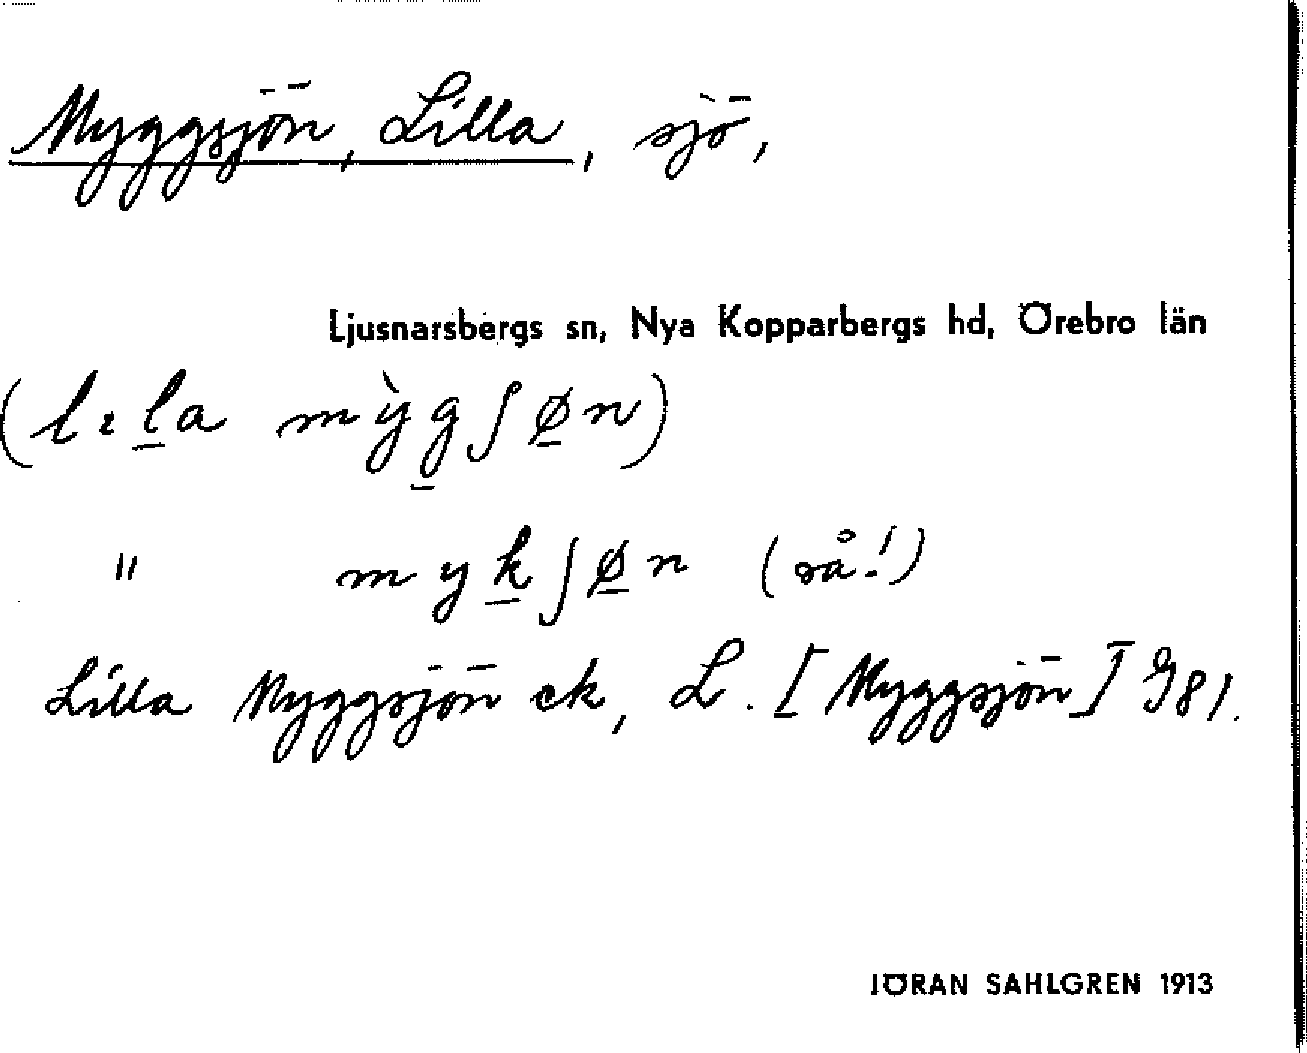 Myggsjön, Lilla, sjö,
Ljusnarsbergs sn, Nya Kopparbergs hd, Örebro län
(lɩl̲a mỳg̲ʃø̲n)
" myk̲ʃø̲n (så!)
Lilla Myggsjön ek, L. [Myggsjön] G81.
JÖRAN SAHLGREN 1913